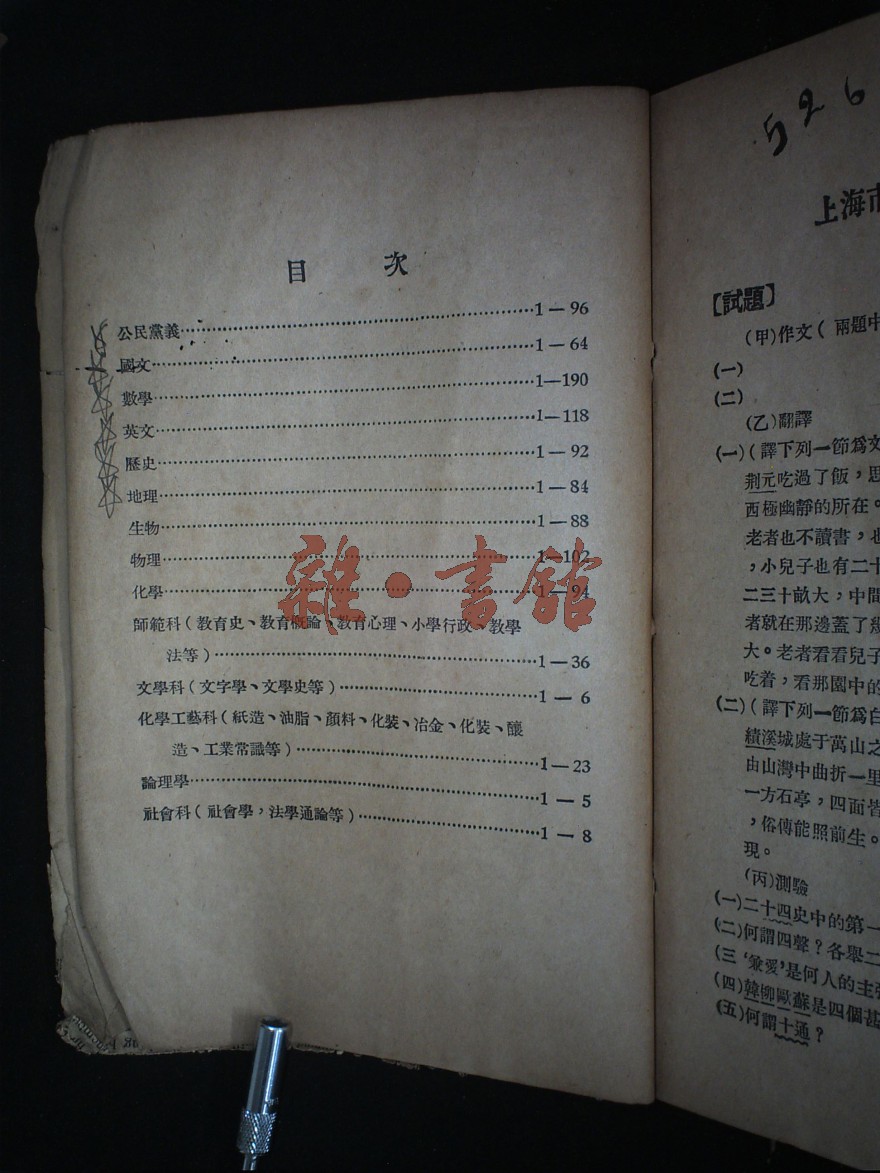 目　　次
公民黨義……1—96
國文……1—64
數學……1—190
英文……1—118
歷史……1—92
地理……1—84
生物……1—88
物理……1—102
化學……1—94
師範科（教育史、教育概論、教育心理、小學行政、教學
法等）……1—36
文學科（文字學、文學史等）……1—6
化學工藝科（紙造、油脂、顏料、化裝、冶金、化裝、釀
造、工業常識等）……1—23
論理學……1—5
社會科（社會學，法學通論等）……1—8
雜·書館
526
上海市
【試題】
（甲）作文（兩題中
（一）
（二）
（乙）翻譯
（一）（譯下列一節爲文
荆元吃過了飯，思
西極幽靜的所在。
老者也不讀書，也
，小兒子也有二十
二三十畝大，中間
者就在那邊蓋了幾
大。老者看看兒子
吃着，看那園中的
（二）（譯下列一節爲白
績溪城處于萬山之
由山灣中曲折一里
一方石亭，四面皆
，俗傳能照前生。
現。
（丙）測驗
（一）二十四史中的第一
（二）何謂四聲？各舉二
（三 '兼愛'是何人的主張
（四）韓柳歐蘇是四個甚
（五）何謂十通？